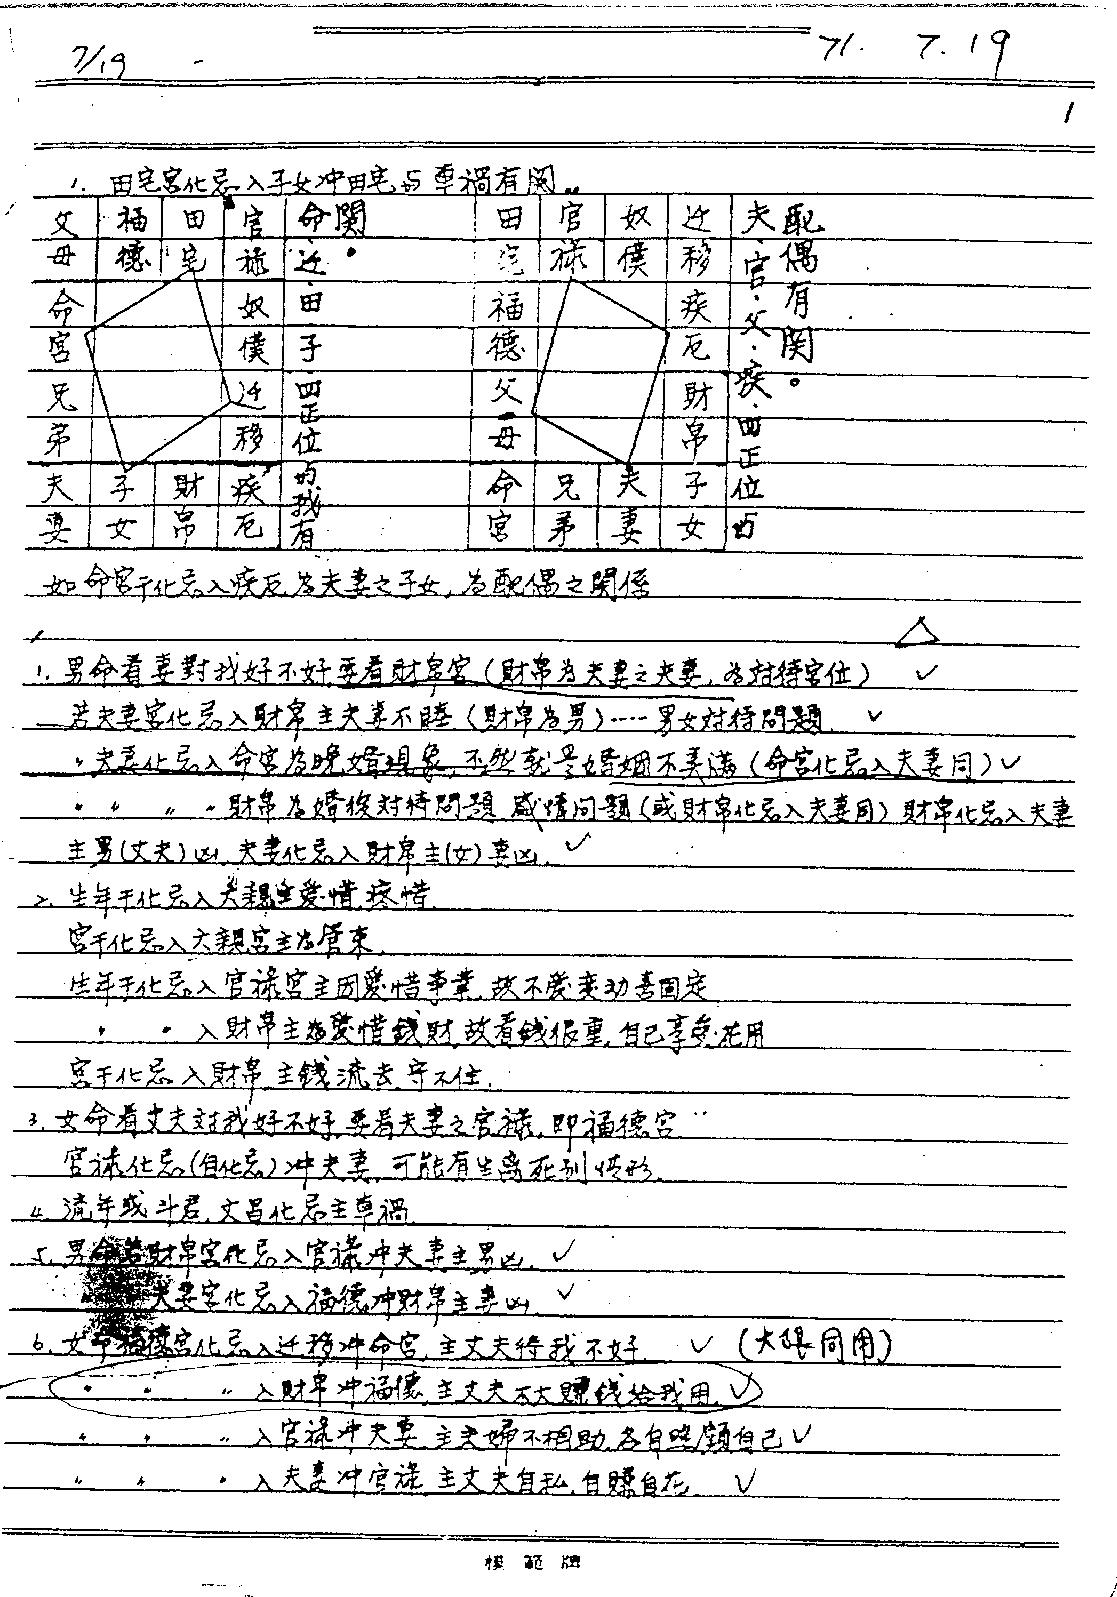 7/19
71. 7. 19
1
1. 田宅宮化忌入子女冲田宅与車禍有関。
父母 福德 田宅 官祿
命宮 奴僕
兄弟 迁移
夫妻 子女 財帛 疾厄
命.迁.田子.四正位的我有
関。
田宅 官祿 奴僕 迁移
福德 疾厄
父母 財帛
命宮 兄弟 夫妻 子女
夫.官.父.疾.四正位与
配偶有関。
如命宮干化忌入疾厄為夫妻之子女,為配偶之関係
1. 男命看妻對我好不好要看財帛宮(財帛為夫妻之夫妻,為対待宮位)✓
若夫妻宮化忌入財帛主夫妻不睦(財帛為男)……男女対待問題 ✓
〃夫妻化忌入命宮為晚婚現象,不然就是婚姻不美滿(命宮化忌入夫妻同)✓
〃 〃 〃 〃財帛為婚後対待問題 感情问題(或財帛化忌入夫妻同)財帛化忌入夫妻
主男(丈夫)凶,夫妻化忌入財帛主(女)妻凶. ✓
2. 生年干化忌入六親主愛惜.疼惜.
宮干化忌入六親宮主為管束.
生年干化忌入官祿宮主因愛惜事業,故不愛变动喜固定
〃 〃 入財帛主為愛惜錢財,故看錢很重,自己享受花用
宮干化忌入財帛主錢流去守不住.
3. 女命看丈夫対我好不好,要看夫妻之官祿,即福德宮
官祿化忌(自化忌)冲夫妻,可能有生离死别情形.
4. 流年或斗君,文昌化忌主車禍.
5. 男命若財帛宮化忌入官祿冲夫妻主男凶. ✓
夫妻宮化忌入福德冲財帛主妻凶. ✓
6. 女命福德宮化忌入迁移冲命宮,主丈夫待我不好 ✓ (大限同用)
〃 〃 〃 入財帛冲福德,主丈夫不大賺錢给我用. ✓
〃 〃 〃 入官祿冲夫妻,主夫婦不相助,各自照顧自己 ✓
〃 〃 〃 入夫妻冲官祿,主丈夫自私,自賺自花. ✓
模範牌